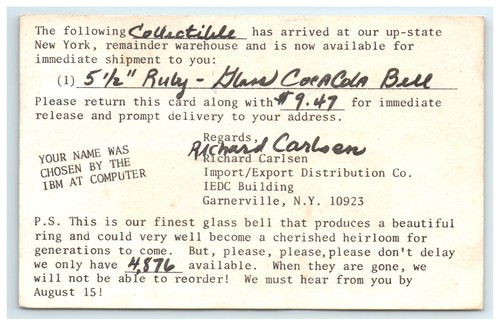 The following Collectible has arrived at our up-state
New York, remainder warehouse and is now available for
immediate shipment to you:
(1) 5½" Ruby - Glass CocaCola Bell
Please return this card along with $9.47 for immediate
release and prompt delivery to your address.
Regards,
Richard Carlsen
Richard Carlsen
Import/Export Distribution Co.
IEDC Building
Garnerville, N.Y. 10923
YOUR NAME WAS
CHOSEN BY THE
IBM AT COMPUTER
P.S. This is our finest glass bell that produces a beautiful
ring and could very well become a cherished heirloom for
generations to come. But, please, please,please don't delay
we only have 4,876 available. When they are gone, we
will not be able to reorder! We must hear from you by
August 15!